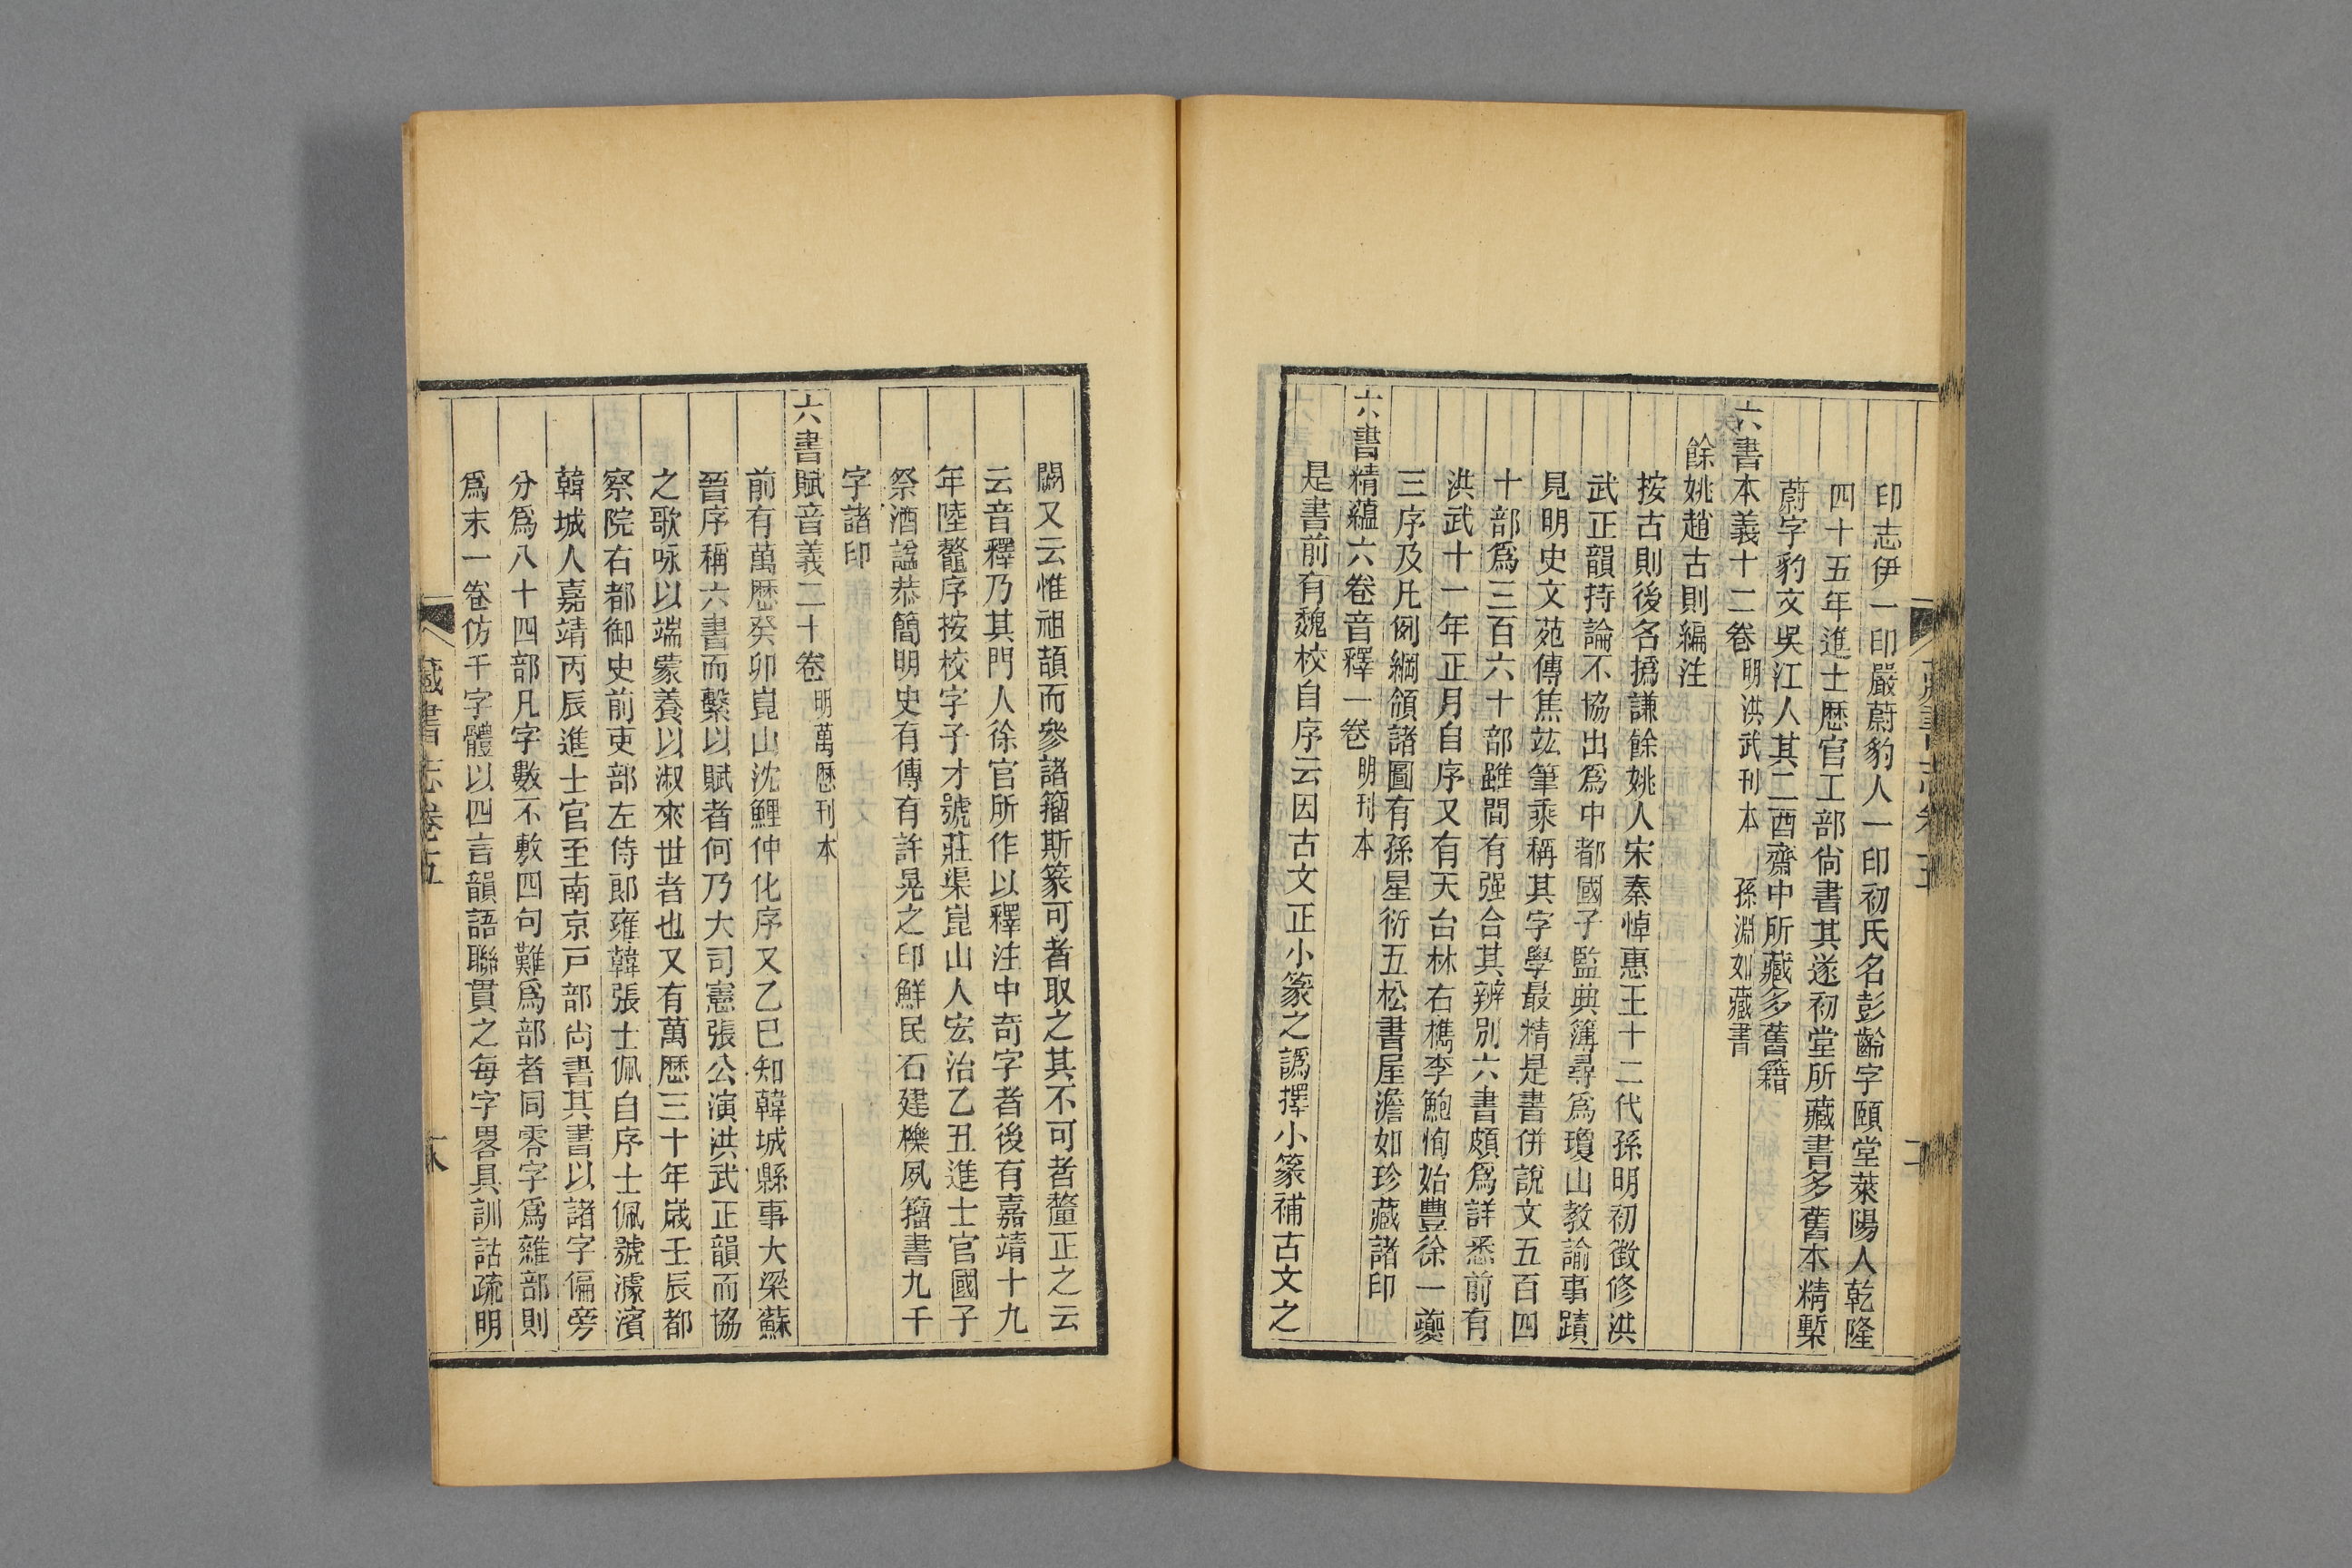 印志伊一印嚴蔚豹人一印初氏名彭齡字頤堂萊陽人乾隆
四十五年進士歷官工部尙書其遂初堂所藏書多舊本精槧
蔚字豹文吳江人其二酉齋中所藏多舊籍
六書本義十二卷 明洪武刊本 孫淵如藏書
餘姚趙古則編注
按古則後名撝謙餘姚人宋秦悼惠王十二代孫明初徵修洪
武正韻持論不協出爲中都國子監典簿尋爲瓊山教諭事蹟
見明史文苑傳焦竑筆乘稱其字學最精是書併說文五百四
十部爲三百六十部雖間有强合其辨別六書頗爲詳悉前有
洪武十一年正月自序又有天台林右檇李鮑恂始豐徐一夔
三序及凡例綱領諸圖有孫星衍五松書屋澹如珍藏諸印
六書精蘊六卷音釋一卷 明刊本
是書前有魏校自序云因古文正小篆之譌擇小篆補古文之
闕又云惟祖頡而參諸籀斯篆可者取之其不可者釐正之云
云音釋乃其門人徐官所作以釋注中奇字者後有嘉靖十九
年陸鼇序按校字子才號莊渠崑山人宏治乙丑進士官國子
祭酒諡恭簡明史有傳有許晃之印鮮民石建櫟夙籀書九千
字諸印
六書賦音義二十卷 明萬歷刊本
前有萬歷癸卯崑山沈鯉仲化序又乙巳知韓城縣事大梁蘇
晉序稱六書而繫以賦者何乃大司憲張公演洪武正韻而協
之歌咏以端蒙養以淑來世者也又有萬歷三十年歲壬辰都
察院右都御史前吏部左侍郎雍韓張士佩自序士佩號濩濱
韓城人嘉靖丙辰進士官至南京戸部尙書其書以諸字偏旁
分爲八十四部凡字數不敷四句難爲部者同零字爲雜部則
爲末一卷仿千字體以四言韻語聯貫之每字畧具訓詁疏明
藏書志卷十五